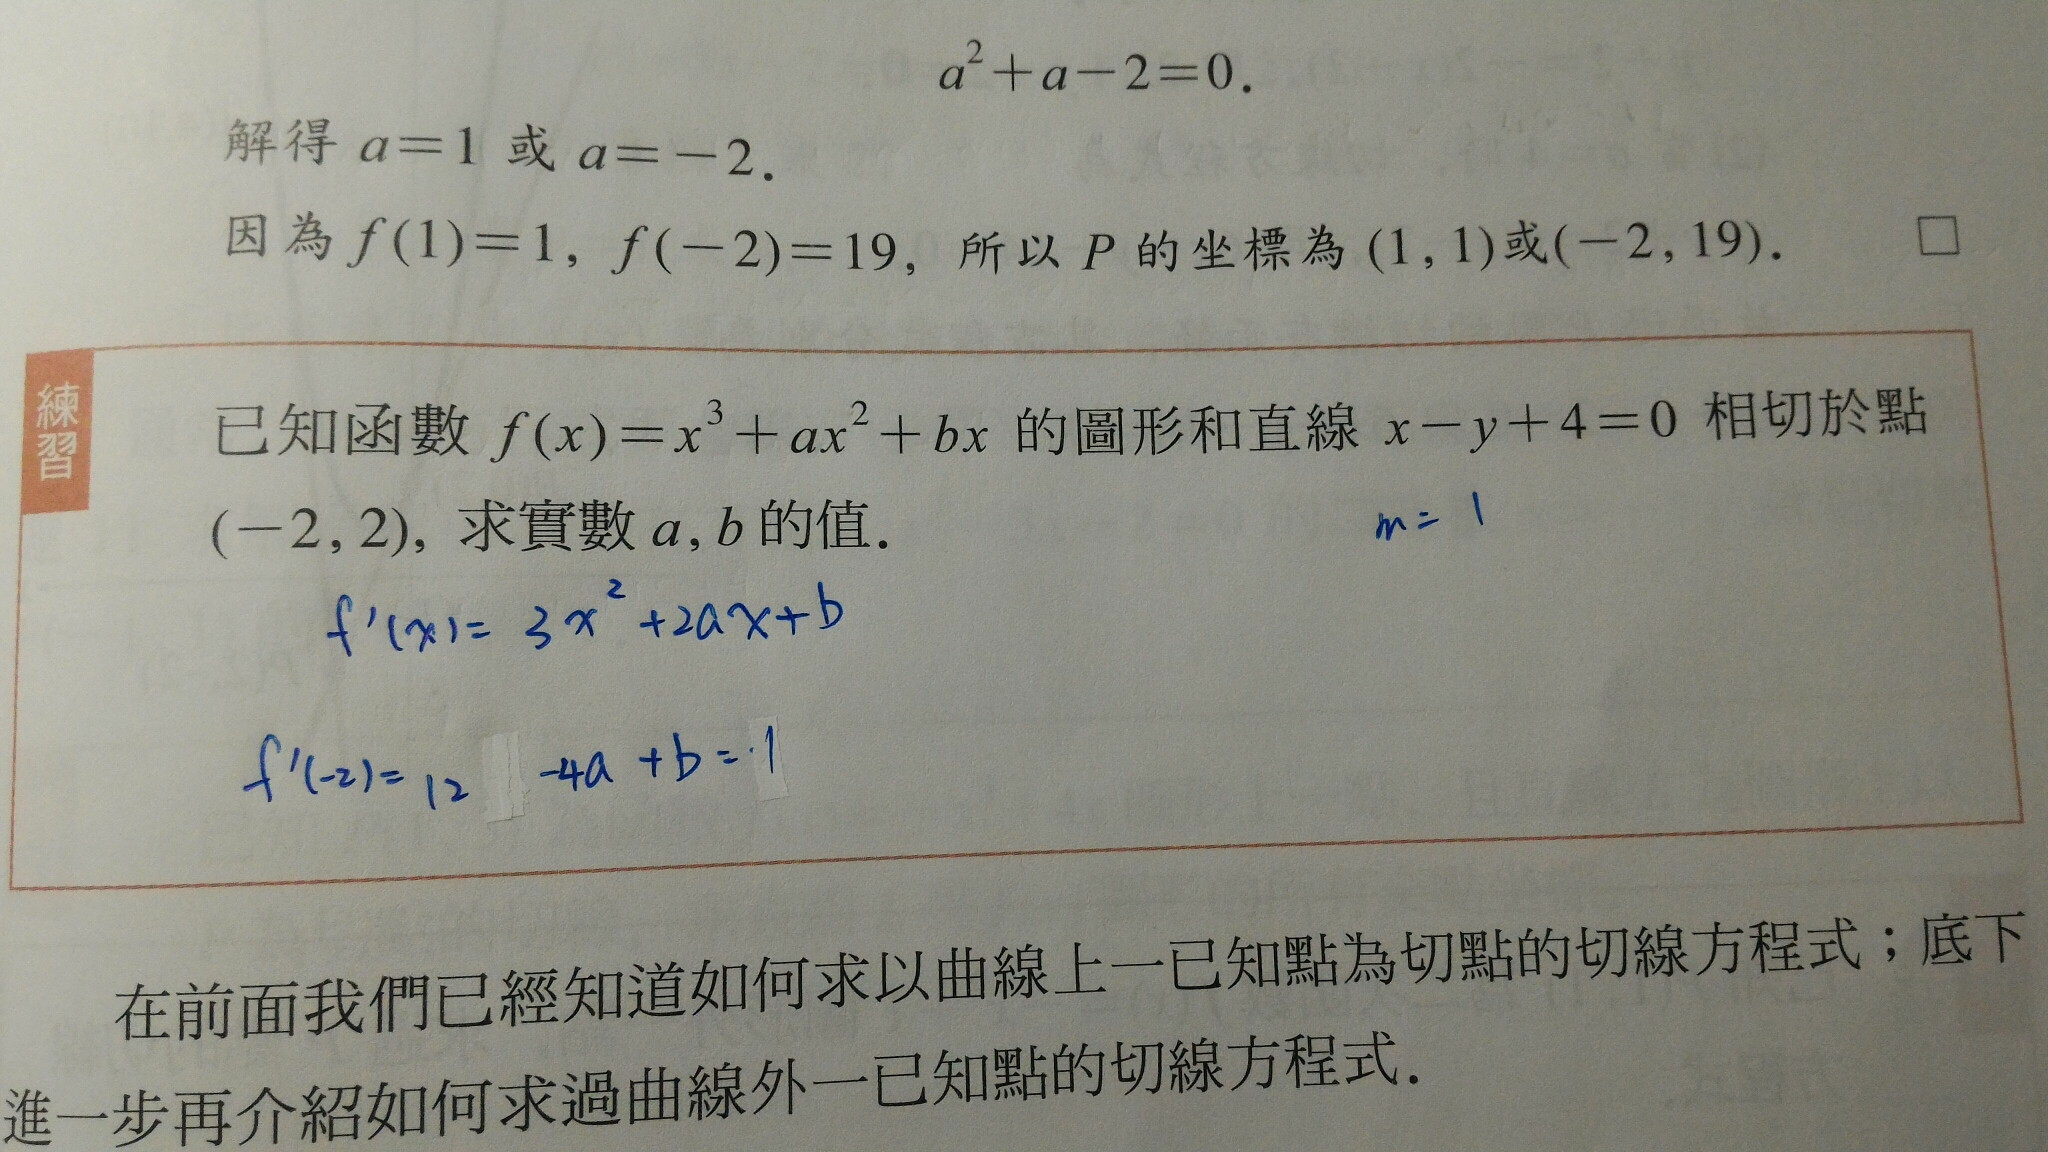 a²+a−2=0.
解得 a=1 或 a=−2.
因為 f(1)=1, f(−2)=19, 所以 P 的坐標為 (1,1)或(−2,19). □
練習
已知函數 f(x)=x³+ax²+bx 的圖形和直線 x−y+4=0 相切於點
(−2,2), 求實數 a,b 的值.
m= 1
f'(x)= 3x²+2ax+b
f'(-2)= 12 -4a +b = 1
在前面我們已經知道如何求以曲線上一已知點為切點的切線方程式；底下
進一步再介紹如何求過曲線外一已知點的切線方程式.